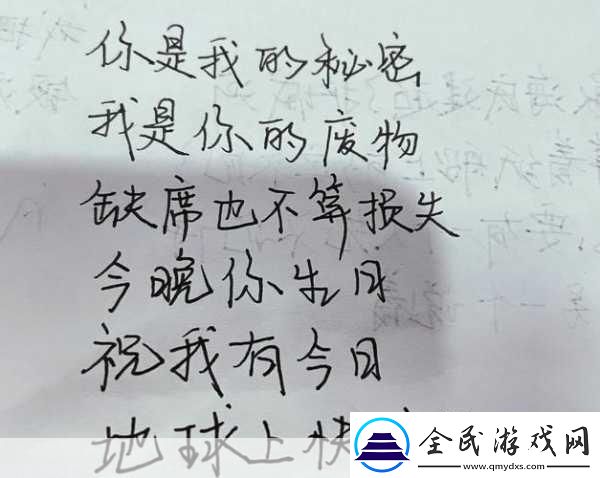 你是我的秘密
我是你的废物
缺席也不算损失
今晚你生日
祝我有今日
地球上快
全民游戏网
www.qmydxs.com